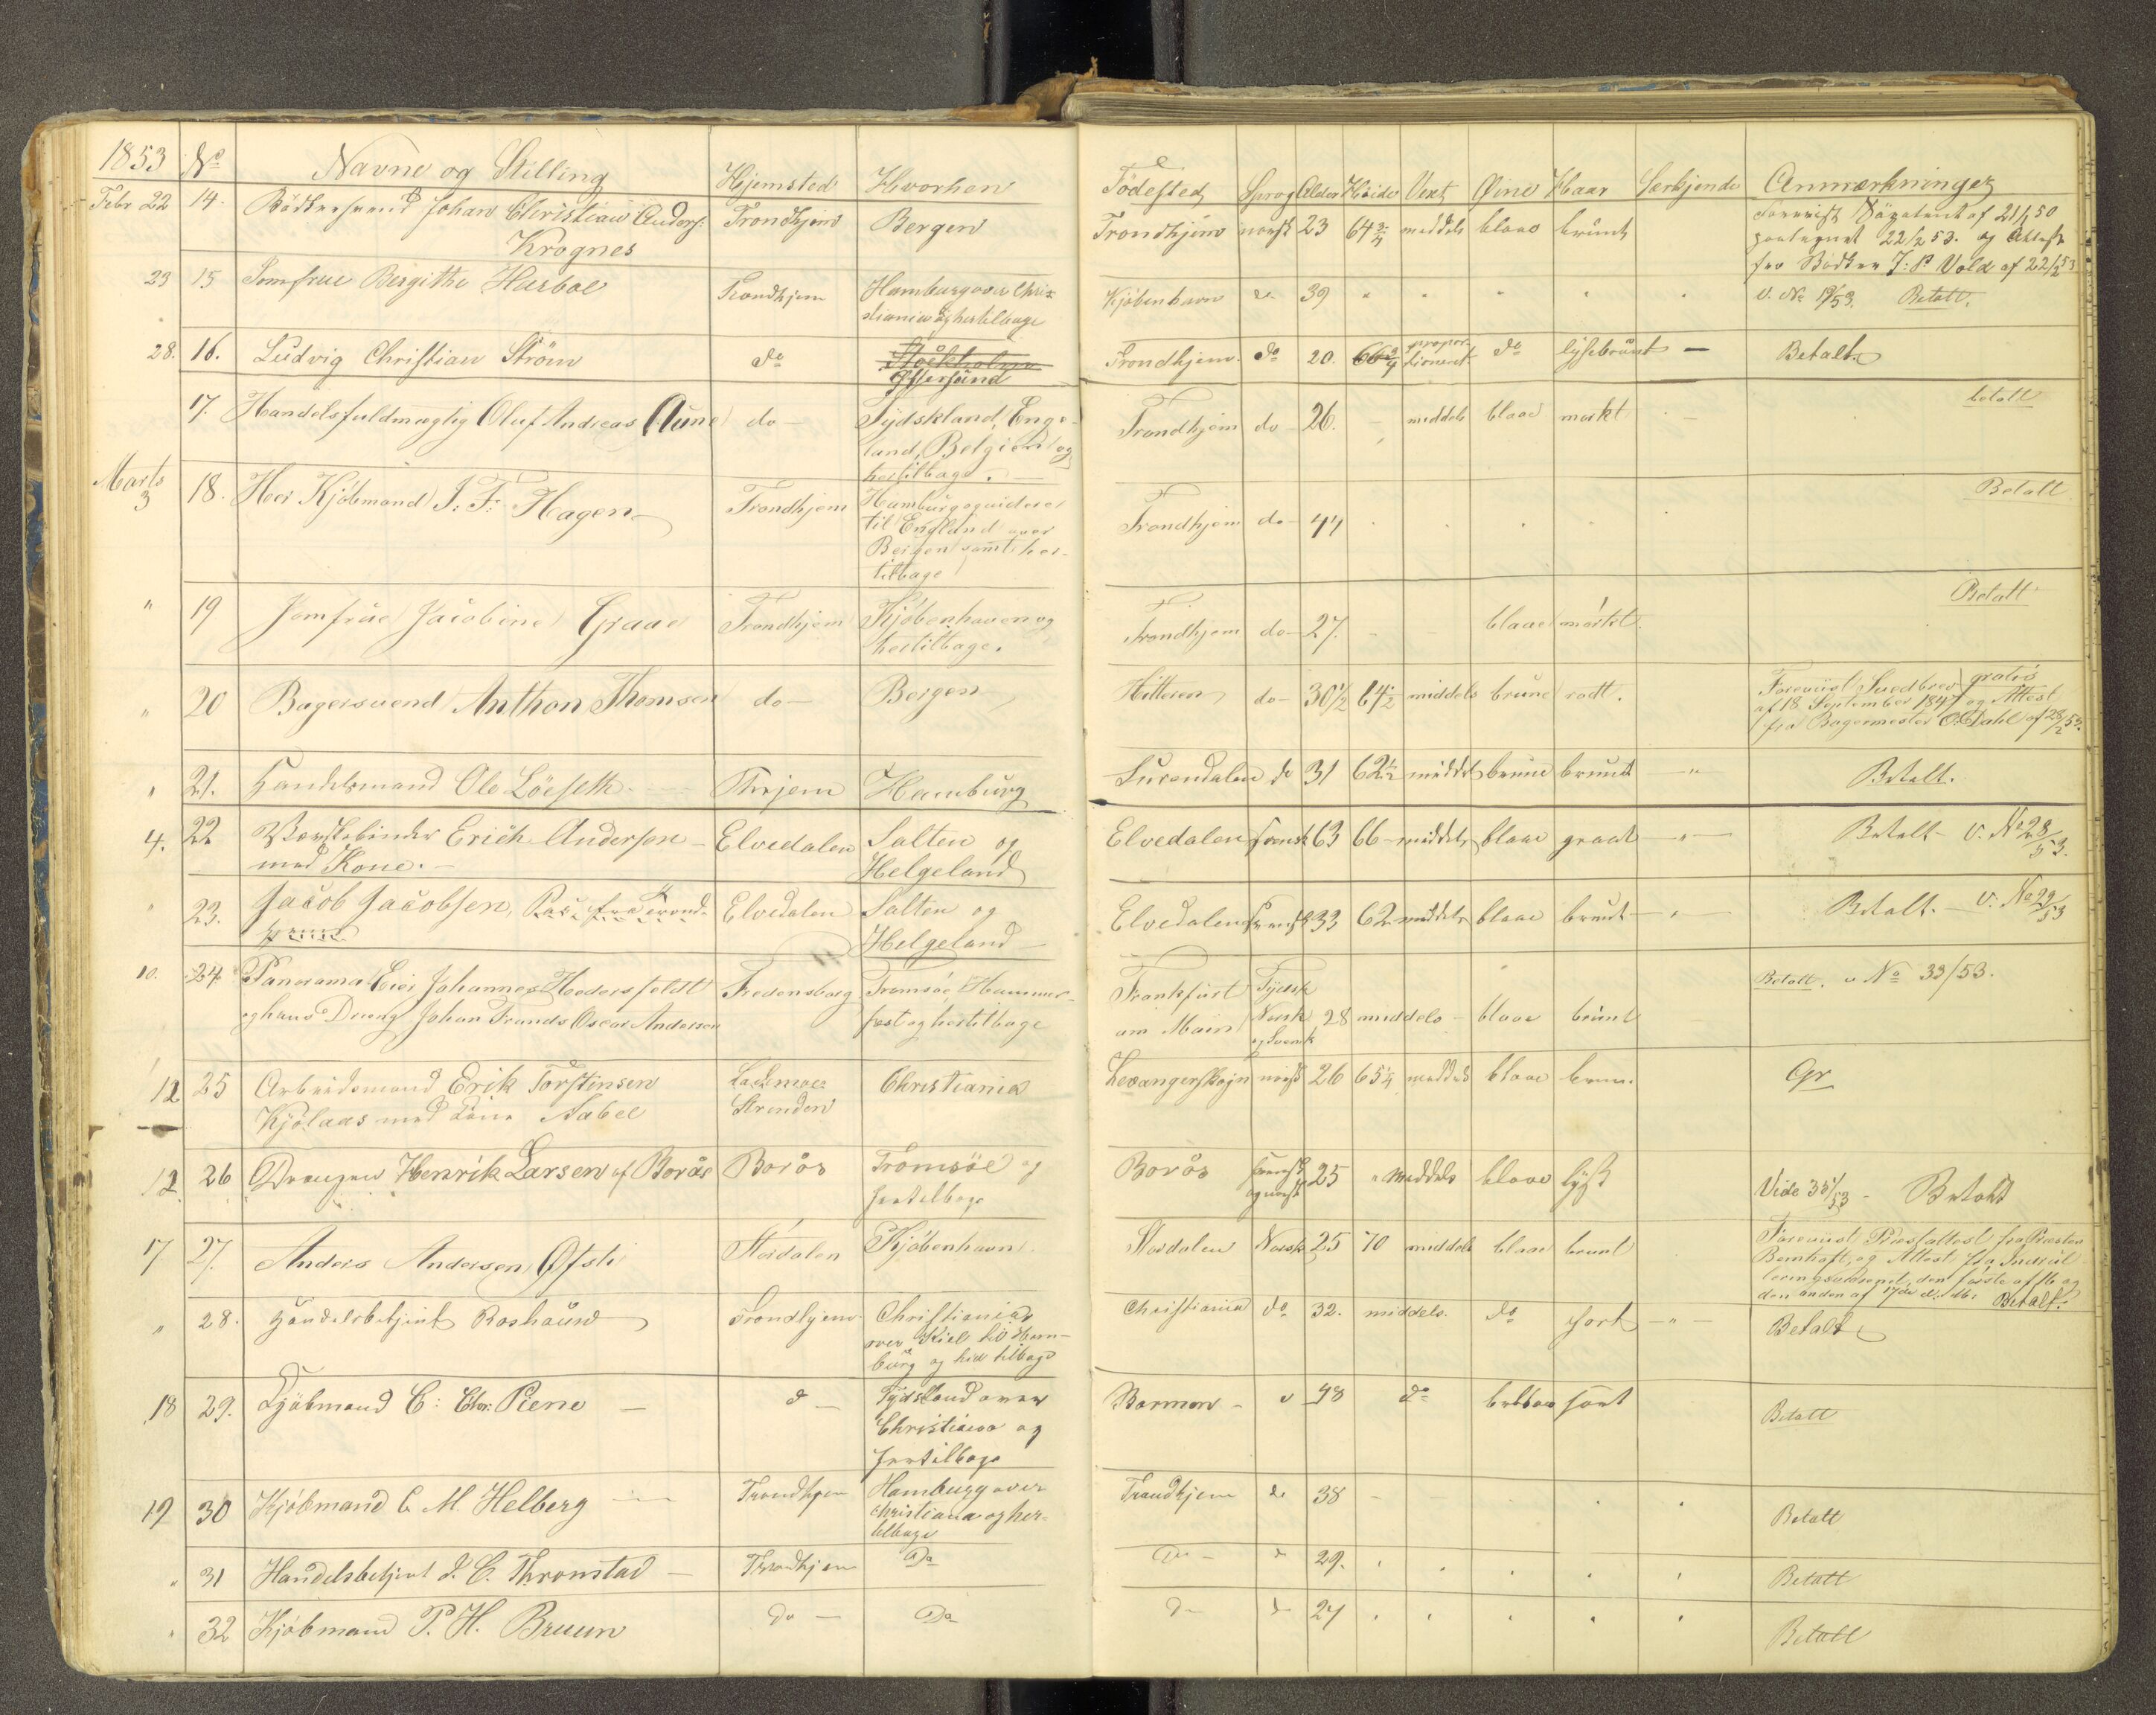 1853 No Navne og Stilling Hjemsted Hvorhen Födested Sprog Alder Höide Vext Øine Haar Særkjende Anmærkninger
Febr 22 14. Bödkersvend Johan Christian Anders: Trondhjem Bergen Trondhjem norsk 23 64 3/4 middels blaae brunt Forevist Söepatent af 21/1 50
Krognes paategnet 22/2 53. og Attest
fra Bödker J: P Vold af 22/2 53
23 15 Jomfrue Bergitte Harboe Trondhjem Hamburg over Chri= Kjöbenhavn do 39 " " " " " V. No 19/53. Betalt.
stiania og hertilbage
28. 16. Ludvig Christian Ström do Stockholm Trondhjem. do 20. 66 3/4 propor- do lysebrunt — Betalt.
Østersund tioneret
17. Handelsfuldmægtig Oluf Andreas Aune do — Tydskland, Eng- Trondhjem do — 26. — middels blaae mørkt — betalt
land, Belgien og
hertilbage. —
Marts
3 18. Herr Kjöbmand J. F: Hagen Trondhjem Hamburg og videre Trondhjem do — 44 Betalt
til England over
Bergen samt her-
tilbage
" 19 Jomfrue Jacobine Graae Trondhjem Kjöbenhaven og Trondhjem do — 27. — — blaae mörkt. Betalt
hertilbage.
" 20 Bagersvend Anthon Thomsen do — Bergen Hitteren do — 30 1/2 64 1/2 middels brune rødt. Foreviist Svedbrev gratis
af 18 September 1847 og Attest
fra Bagermester O. Dahl af 28/2 53.
" 21. Handelsmand Ole Löeseth. Thrjem Hamburg Surendalen do 31 62 1/2 middels brune brunt — " Betalt.
4. 22 Børstebinder Erich Anderson — Elvedalen Salten og Elvedalen svensk 63 66 — middels blaae graat — " — Betalt — V. No 28/53.
med Kone. — Helgeland
" 23. Jacob Jacobsen, Pas fra Trond- Elvedalen Salten og Elvedalen svensk 33 62 middels blaae brunt — " — Betalt. — V. No 29/53
hjem Helgeland —
10. 24 Panorama Eier Johannes Hedersfeldt Fredensborg Tromsöe, Hammer- Frankfurt Tydsk Betalt. v No 33/53.
og hans Dreng Johan Frands Oscar Andersen fest og hertilbage am Main Norsk 28 middels — blaae brunt
og Svensk
12 25 Arbeidsmand Erik Torstinsen Lademoe= Christiania Lexanger Sogn norsk 26 65 1/4 middels blaae brune. Gr
Kjölaas med Kone Sabel Strinden
12 26 Drengen Henrik Larsen af Borås Borås Tromsöe og Borås svensk 25 " middels blaae lyst Vide 35/53 — Betalt
hertilbage og norsk
17 27. Anders Andersen Ofsti Stördalen Kjöbenhavn Stördalen Norsk 25 70 middels blaae brunt Foreviist Præsteattest fra Præsten
Bernhoft, og Attest fra Indrul-
leringsvæsenet, den første af 16 og
den anden af 17de d: M: Betalt.
" 28. Handelsbetjent Roshauw Trondhjem. Christiania Christiania do 32. middels. do sort — " — Betalt
over Kiel til Ham-
burg og hid tilbage
18 29. Kjöbmand C: Chr: Piene — do — Tydskland over Barmen — do 48 do sort Betalt
Christiania og
hertilbage
19 30 Kjöbmand C. M. Helberg — Trondhjem Hamburg over Trondhjem do 38 — Betalt
Christiania og her-
tilbage
" 31 Handelsbetjent J. C. Thronstad — Trondhjem Do Do — do 29. Betalt
" 32 Kjöbmand P. H. Bruun do — Do do do 27 Betalt